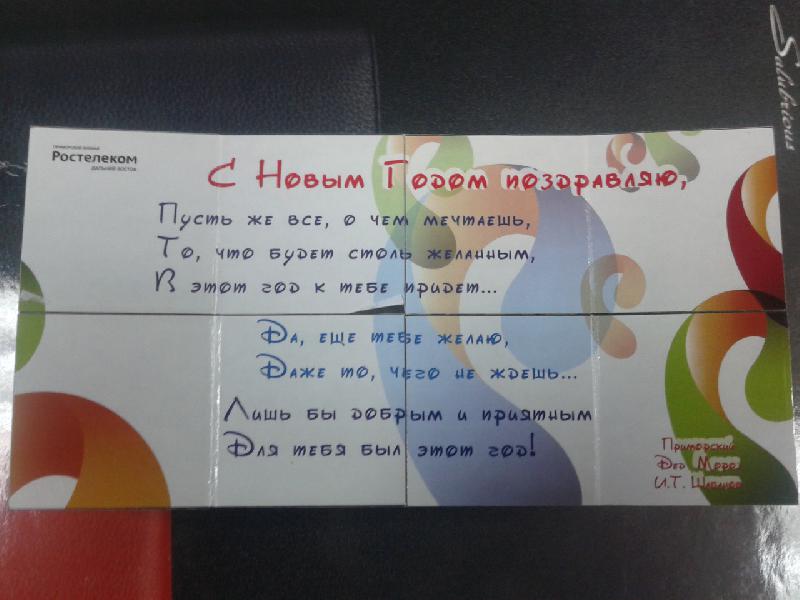 Ростелеком
ДАЛЬНИЙ ВОСТОК
С Новым Годом поздравляю,
Пусть же все, о чем мечтаешь,
То, что будет столь желанным,
В этот год к тебе придет...
Да, еще тебе желаю,
Даже то, чего не ждешь...
Лишь бы добрым и приятным
Для тебя был этот год!
Приморский
Дед Мороз
И.Т.
Salubrious